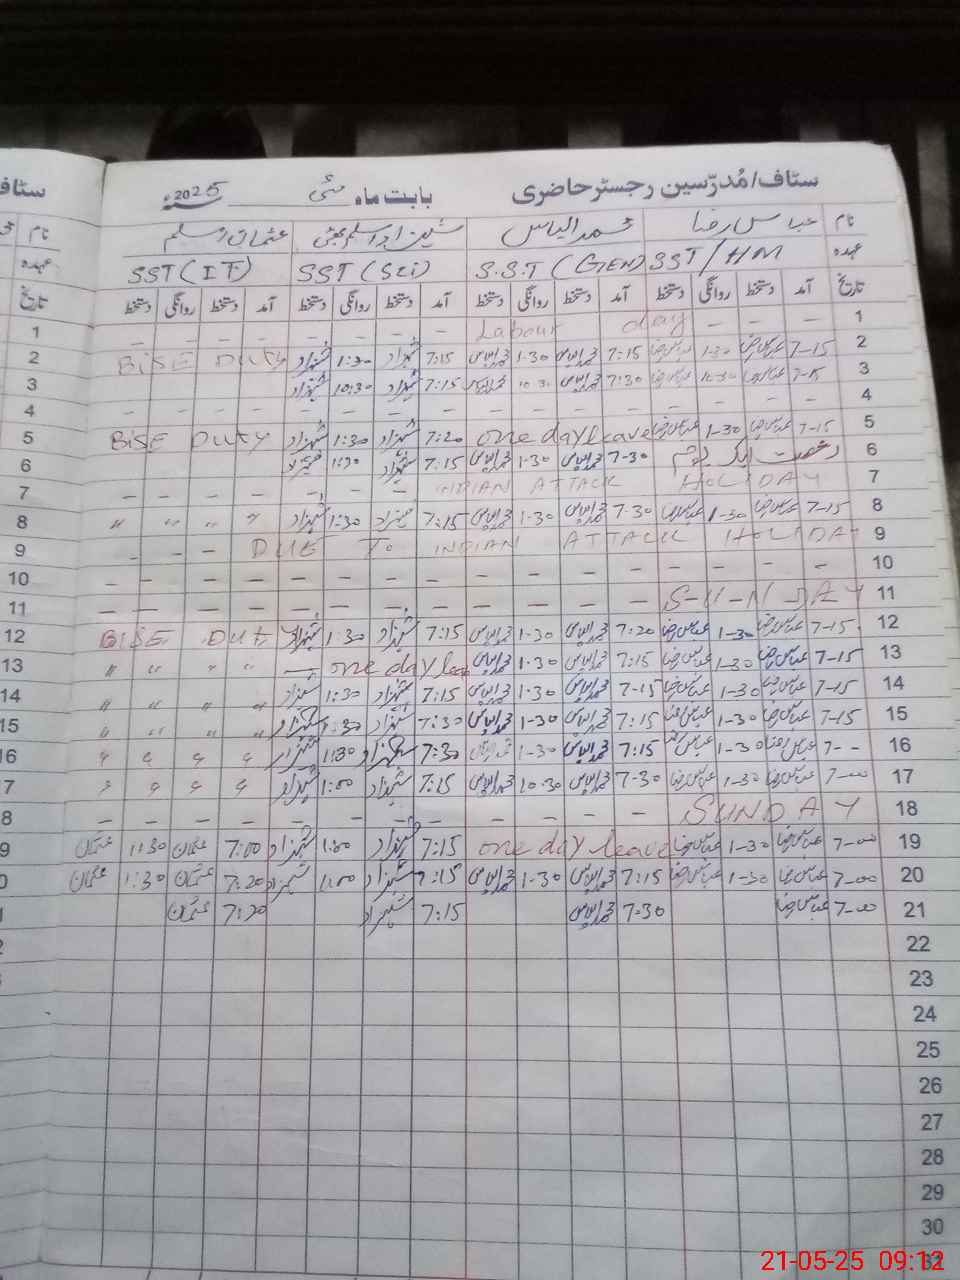 سٹاف/مُدرّسین رجسٹر حاضری بابت ماہ مئی 2025ء
نام عباس رضا محمد الیاس شہزاد اسلم بھٹی عثمان اسلم
عہدہ SST/HM S.S.T (GEN) SST (Sci) SST (IT)
تاریخ آمد دستخط روانگی دستخط آمد دستخط روانگی دستخط آمد دستخط روانگی دستخط آمد دستخط روانگی دستخط
1 – – – Labour day – – – – – – – –
2 7-15 عباس رضا 1-30 عباس رضا 7:15 محمد الیاس 1-30 محمد الیاس 7:15 شہزاد 1:30 شہزاد BISE DUTY
3 7-15 عباس رضا عباس رضا 7:30 محمد الیاس 10.30 محمد الیاس 7:15 شہزاد 10:30 شہزاد
4 – – – – – – – – – – – – – – – –
5 7-15 عباس رضا 1-30 عباس رضا one day leave 7:20 شہزاد 1:30 شہزاد BISE DUTY
6 رخصت ایک یوم 7-30 محمد الیاس 1-30 محمد الیاس 7:15 شہزاد 1:30 شہزاد
7 INDIAN ATTACK HOLIDAY – – – – – – –
8 7-15 عباس رضا 1-30 عباس رضا 7-30 محمد الیاس 1-30 محمد الیاس 7:15 شہزاد 1:30 شہزاد " " " "
9 – – – DUE TO INDIAN ATTACK HOLIDAY
10 – – – – – – – – – – – – – – – –
11 S-U-N-DAY – – – – – – – – – – – –
12 7-15 عباس رضا 1-30 عباس رضا 7:20 محمد الیاس 1-30 محمد الیاس 7:15 شہزاد 1:30 شہزاد BISE DUTY
13 7-15 عباس رضا 1-30 عباس رضا 7:15 محمد الیاس 1-30 محمد الیاس one day leave – " " " "
14 7-15 عباس رضا 1-30 عباس رضا 7-15 محمد الیاس 1-30 محمد الیاس 7:15 شہزاد 1:30 شہزاد " " " "
15 7-15 عباس رضا 1-30 عباس رضا 7:15 محمد الیاس 1-30 محمد الیاس 7:30 شہزاد 1:30 شہزاد " " " "
16 7-- عباس رضا 1-30 عباس رضا 7:15 محمد الیاس 1-30 محمد الیاس 7:30 شہزاد 1:30 شہزاد " " " "
17 7-00 عباس رضا 1-30 عباس رضا 7-30 محمد الیاس 10-30 محمد الیاس 7:15 شہزاد 1:00 شہزاد " " " "
18 SUNDAY – – – – – – – – – – – –
19 7-00 عباس رضا 1-30 عباس رضا one day leave 7:15 شہزاد 1:00 شہزاد 7:00 عثمان 1:30 عثمان
20 7-00 عباس رضا 1-30 عباس رضا 7:15 محمد الیاس 1-30 محمد الیاس 7:15 شہزاد 1:00 شہزاد 7:20 عثمان 1:30 عثمان
21 7-00 عباس رضا 7-30 محمد الیاس 7:15 شہزاد 7:20 عثمان
22
23
24
25
26
27
28
29
30
21-05-25 09:12